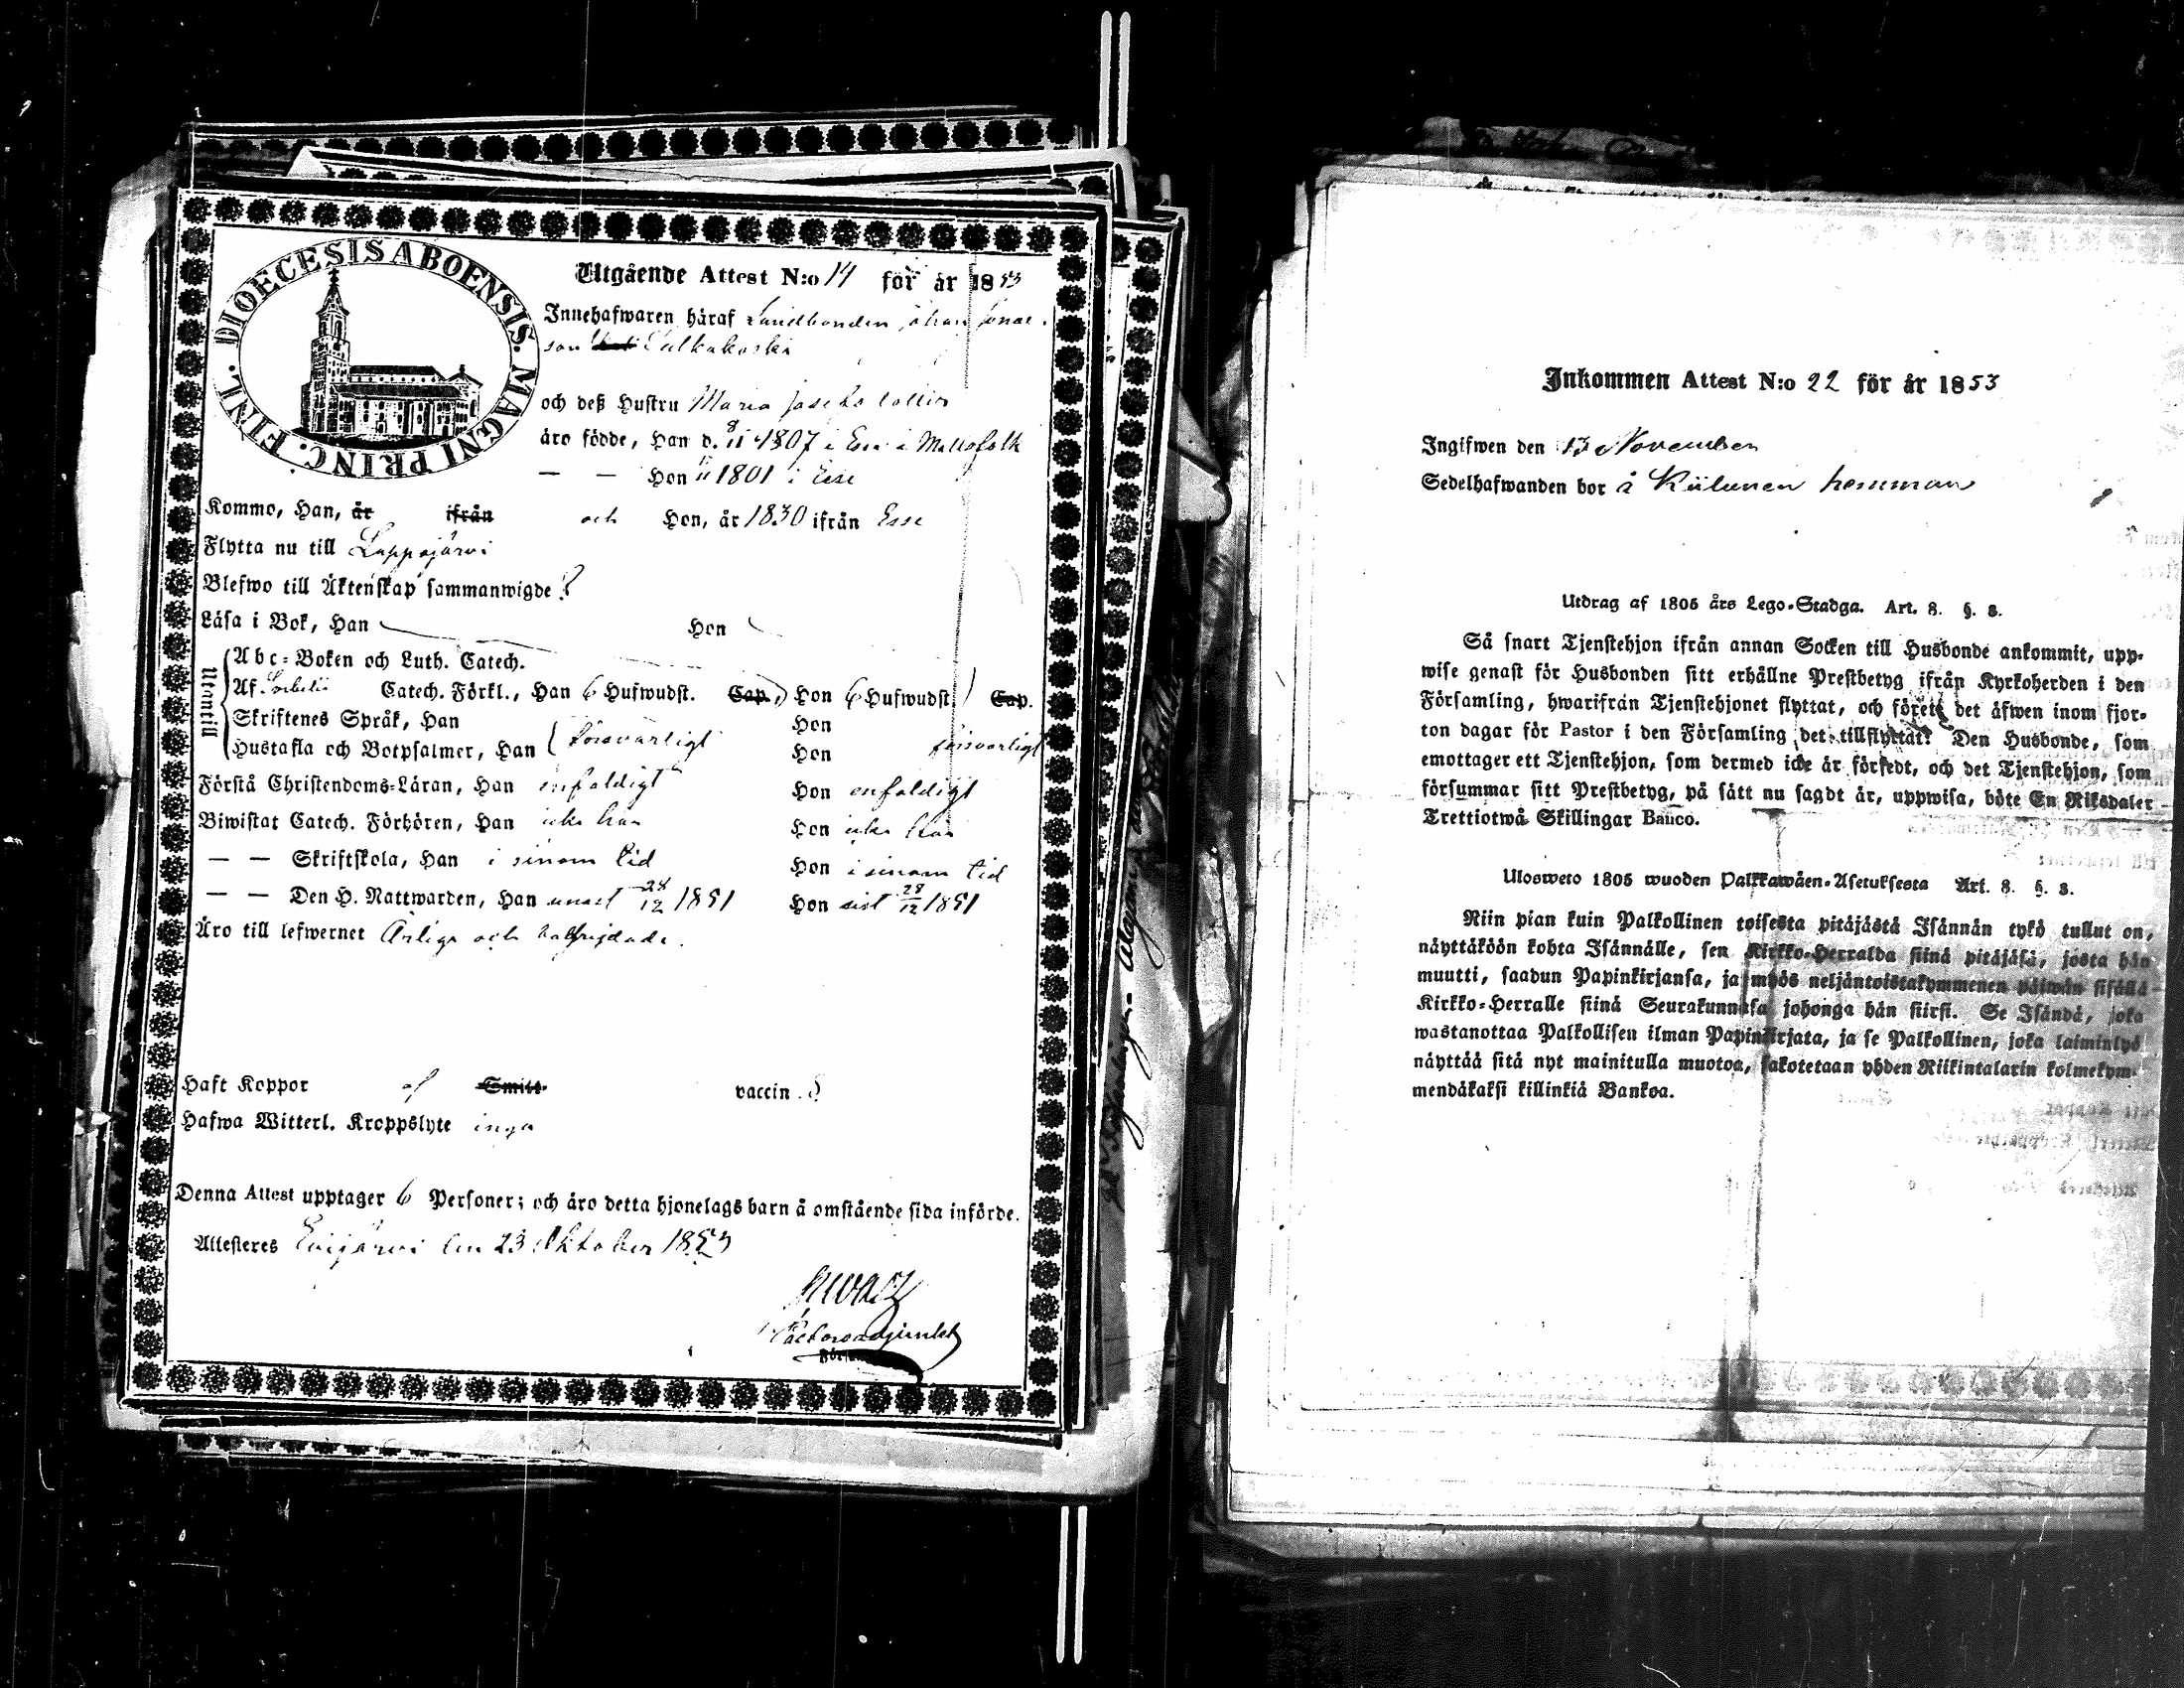 DIOECESIS ABOENSIS. MAGNI PRINC. FINL.
Utgående Attest N:o 14 för år 1853
Innehafwaren häraf Landbonden Johan Jonas-
son Salkakoski
och deß Hustru Maria Josefs dotter
äro födde, Han d. 8/11 1807 i Esse i Mattsfolk
— — Hon 11 1801 i Esse
Komme, Han, år ifrån och Hon, år 1830 ifrån Esse
Flytta nu till Lappajärvi
Blefwo till Äktenskap sammanwigde ?
Läsa i Bok, Han Hon
Utantill
Abc-Boken och Luth. Catech.
Af Sorbelii Catech. Förkl., Han 6 Hufwudst. Cap. Hon 6 Hufwudst. Cap.
Skriftenes Språk, Han Hon
Hustafla och Botpsalmer, Han försvarligt Hon försvarligt
Förstå Christendoms-Läran, Han enfaldigt Hon enfaldigt
Biwistat Catech. Förhören, Han icke här Hon icke här
— — Skriftskola, Han i sinom tid Hon i sinom tid
— — Den H. Nattwarden, Han senast 28/12 1851 Hon sist 28/12 1851
Äro till lefwernet Ärliga och
Haft Koppor af Smitt. vaccin.
Hafwa Witterl. Kroppslyte inga
Denna Attest upptager 6 Personer; och äro detta hjonelags barn å omstående sida införde.
Attesteres Evijärvi den 23 Oktober 1853
Pastorsadjunkt
Inkommen Attest N:o 22 för år 1853
Ingifwen den 13 November
Sedelhafwanden bor å Kiilunen hemman
Utdrag af 1805 års Lego-Stadga. Art. 8. §. 8.
Så snart Tjenstehjon ifrån annan Socken till Husbonde ankommit, upp-
wise genast för Husbonden sitt erhållne Prestbetyg ifrån Kyrkoherden i den
Församling, hwarifrån Tjenstehjonet flyttat, och förete det äfwen inom fjor-
ton dagar för Pastor i den Församling det tillflyttat. Den Husbonde, som
emottager ett Tjenstehjon, som dermed icke är försedt, och det Tjenstehjon, som
försummar sitt Prestbetyg, på sätt nu sagdt är, uppwisa, böte En Riksdaler
Trettiotwå Skillingar Banco.
Ulosweto 1805 wuoden Palkkawäen-Asetuksesta Art. 8. §. 8.
Niin pian kuin Palkollinen toisesta pitäjästä Isännän tykö tullut on,
näyttäköön kohta Isännälle, sen Kirkko-Herralda siinä pitäjäsä, josta hän
muutti, saadun Papinkirjansa, ja myös neljäntoistakymmenen päiwän sisällä
Kirkko-Herralle siinä Seurakunnasa johonga hän siirsi. Se Isändä, joka
wastanottaa Palkollisen ilman Papinkirjata, ja se Palkollinen, joka laiminlyö
näyttää sitä nyt mainitulla muotoa, sakotetaan yhden Riikintalarin kolmekym-
mendäkaksi killinkiä Bankoa.